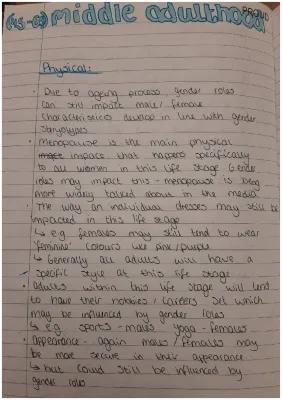 (45-65) middle adulthood
Physical:
• Due to ageing process, gender roles
can still impact male / female
characteristics develop in line with gender
stereotypes
• Menopause is the main physical
impact that happens specifically
to all women in this life stage Gender
roles may impact this - menopause is being
more widely talked about in the media
• The way an individual dresses may still be
impacted in this life stage
↳ e.g. females may still tend to wear
'feminine' colours like pink/purple
↳ Generally all adults will have a
specific style at this life stage
• Adults within this life stage will tend
to have their hobbies / careers set which
may be influenced by gender roles
↳ e.g. sports - males yoga - females
• Appearance - again males / females may
be more secure in their appearance
↳ but could still be influenced by
gender roles